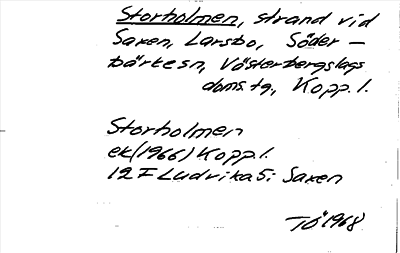 Storholmen, strand vid
Saxen, Larsbo, Söder-
bärkesn, Västerbergslags
doms.tg, Kopp.l.
Storholmen
ek(1966) Kopp.l.
12 F Ludvika 5i Saxen
TÖ 1968